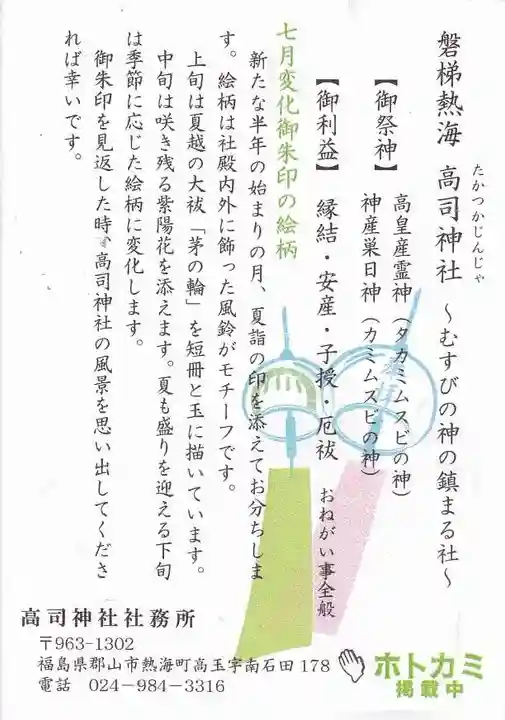 磐梯熱海 高司神社 ～むすびの神の鎮まる社～
たかつかじんじゃ
【御祭神】 高皇産霊神（タカミムスビの神）
神産巣日神（カミムスビの神）
【御利益】 縁結・安産・子授・厄祓 おねがい事全般
七月変化御朱印の絵柄
新たな半年の始まりの月、夏詣の印を添えてお分ちしま
す。絵柄は社殿内外に飾った風鈴がモチーフです。
上旬は夏越の大祓「茅の輪」を短冊と玉に描いています。
中旬は咲き残る紫陽花を添えます。夏も盛りを迎える下旬
は季節に応じた絵柄に変化します。
御朱印を見返した時、高司神社の風景を思い出してくださ
れば幸いです。
高司神社社務所
〒963-1302
福島県郡山市熱海町高玉字南石田 178
電話 024-984-3316
ホトカミ
掲載中